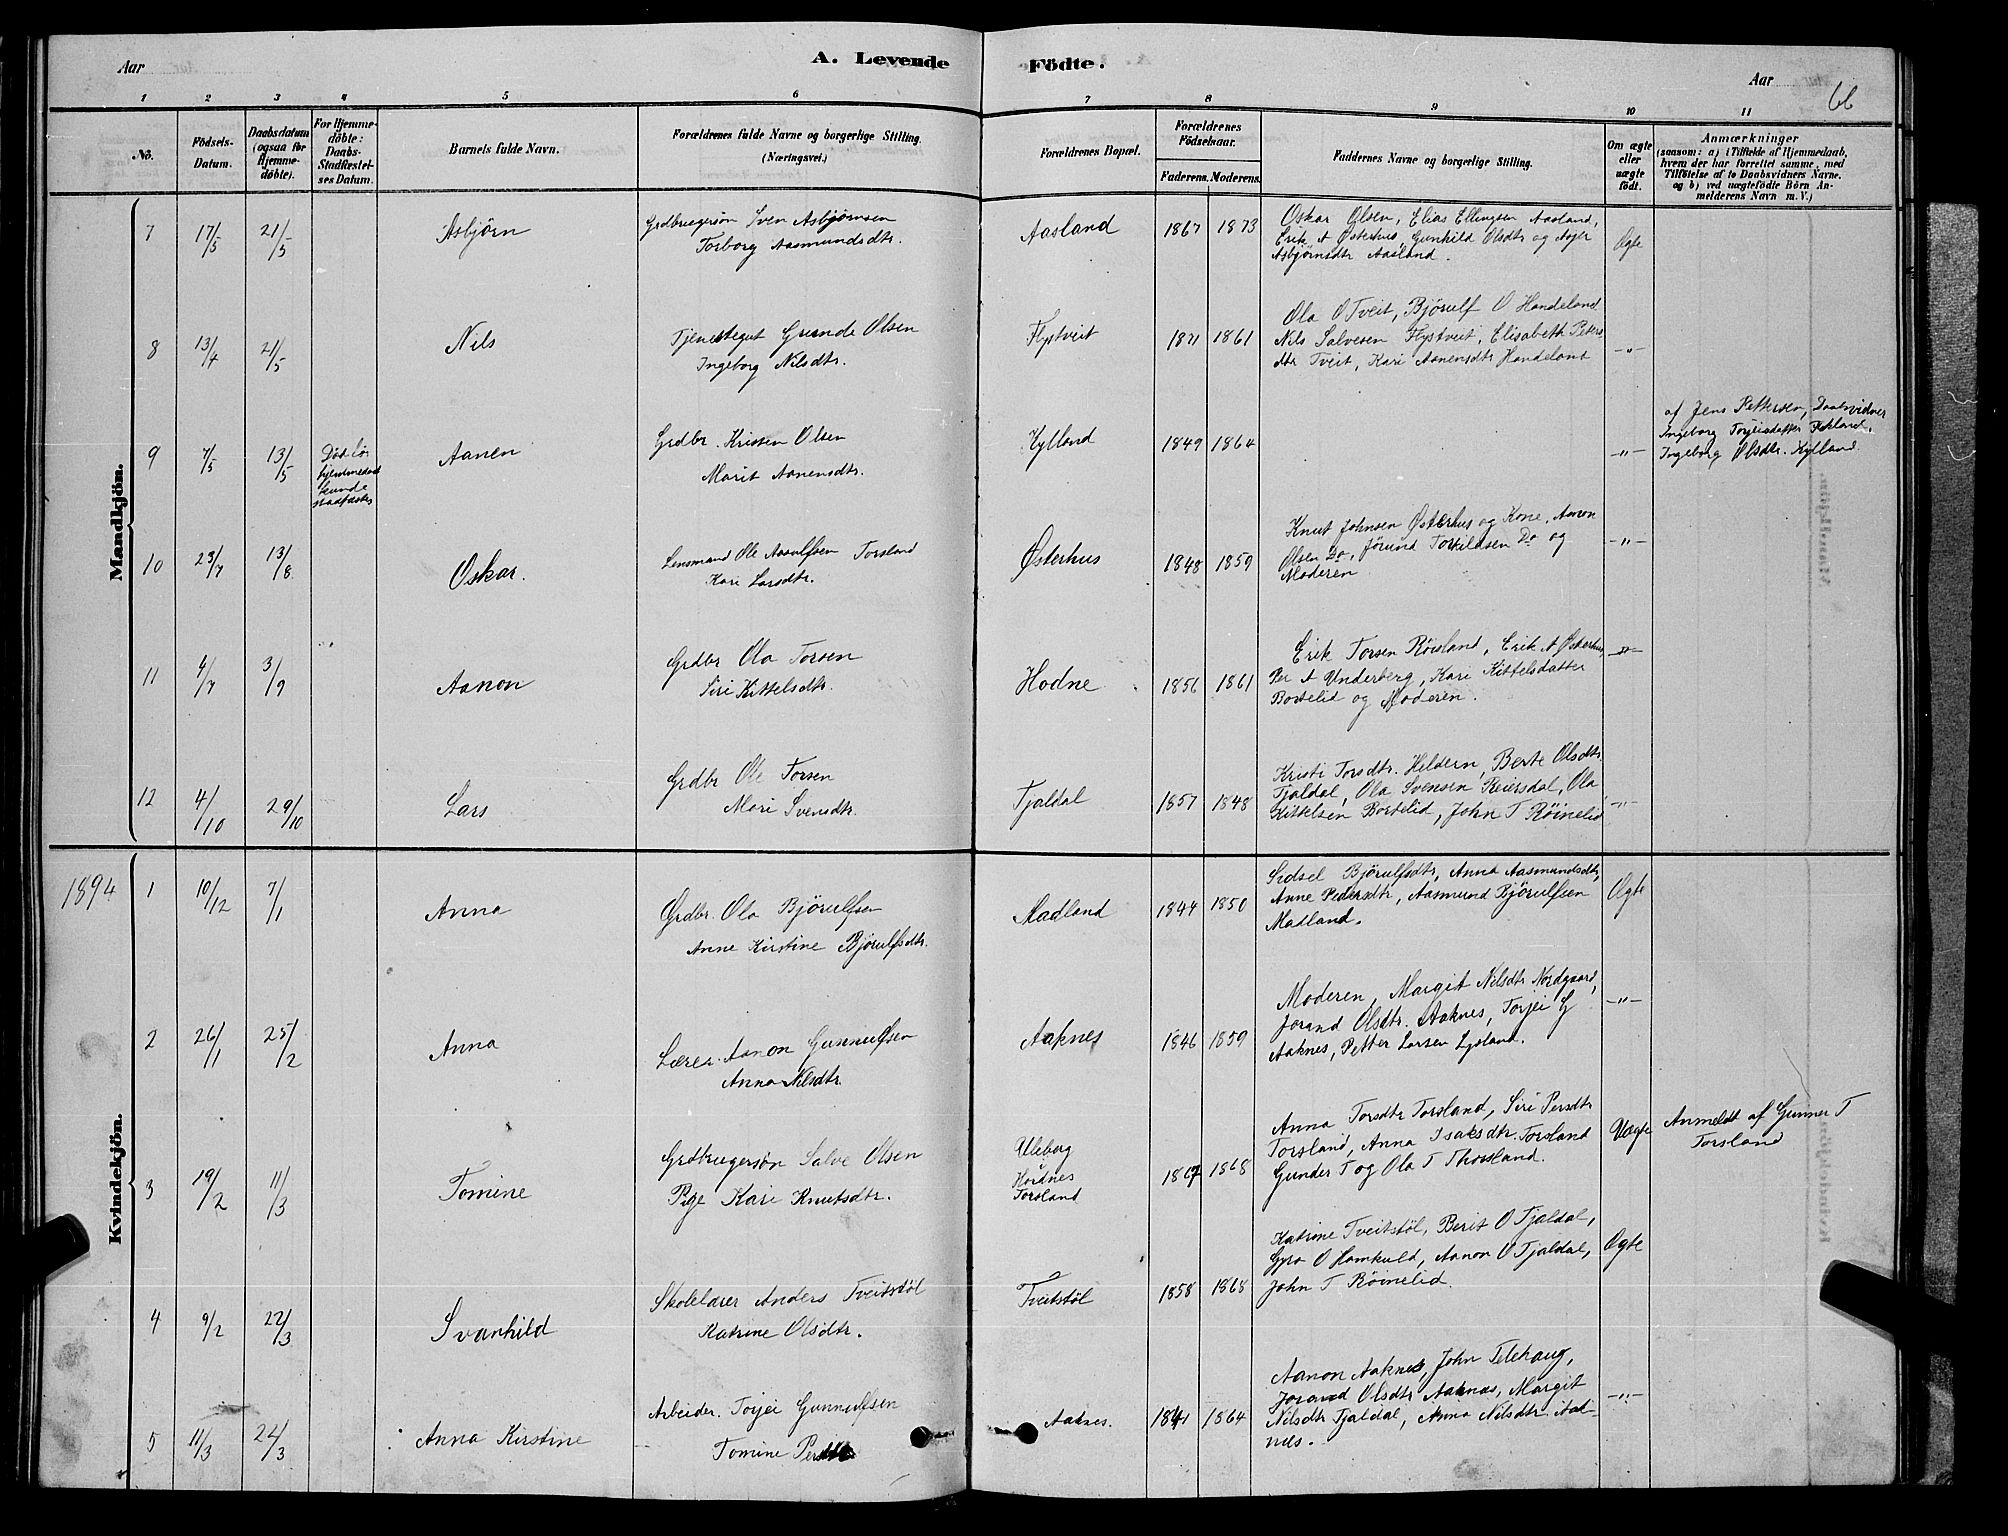 Aar
A. Levende Födte.
Aar
66
1 2 3 4 5 6 7 8 9 10 11
No.
Födsels-Datum.
Daabsdatum (ogsaa for Hjemme-döbte).
For Hjemme-döbte: Daabs-Stadfæstel-ses Datum.
Barnets fulde Navn.
Forældrenes fulde Navne og borgerlige Stilling.
(Næringsvei.)
Forældrenes Bopæl.
Forældrenes Födselsaar.
Faderens. Moderens.
Faddernes Navne og borgerlige Stilling.
Om ægte eller uægte födt.
Anmærkninger
(saasom: a) i Tilfælde af Hjemmedaab, hvem der har forrettet samme, med Tilföielse af to Daabsvidners Navne. og b) ved uægtefödte Börn An-melderens Navn m. V.)
Mandkjön.
7 17/5 21/5 Asbjörn
Grdbrugersøn Sven Asbjørnsen
Torborg Aasmundsdtr.
Aasland 1867 1873
Oskar Olsen, Elias Ellingsen Aasland,
Erik A Østerhus, Gunhild Olsdtr og
Asbjørnsdtr Aasland.
Ægte
8 13/4 21/5 Nils
Tjenestegut Gunde Olsen
Ingeborg Nilsdtr.
Flystveit 1871 1861
Ola O Tveit, Bjørulf O Handeland
Nils Salvesen Flystveit, Elisabeth Peters
dtr Tveit, Kari Aanensdtr Handeland
-"-
9 7/5 13/5
Död før
hjemmedaab
kunde
stadfæstes
Aanen
Grdbr. Kristen Olsen
Marit Aanensdtr.
Kylland 1849 1864
-"-
af Jens Pettersen, Daabsvidner
Ingeborg Torjeisdatter
Ingeborg Olsdtr. Kylland.
10 23/7 13/8 Oskar.
Lensmand Ole Aasulfsen Torsland
Kari Larsdtr.
Østerhus 1848 1859
Knut Johnsen Østerhus og Kone, Aanon
Olsen Do, Jörund Torkildsen Do og
Moderen
-"-
11 4/7 3/9 Aanon
Grdbr Ola Torsen
Siri Kittelsdtr.
Hodne 1856 1861
Erik Torsen Röisland, Erik A Østerhus,
Per A Underberg, Kari Kittelsdatter
Bortelid og Moderen.
-"-
12 4/10 29/10 Lars
Grdbr Ole Torsen
Mari Svensdtr.
Tjaldal 1857 1848
Kristi Torsdtr. Heldern, Berte Olsdtr.
Tjaldal, Ola Svensen Reiersdal, Ola
Kittelsen Bortelid, John T Röinelid
-"-
1894
Kvindekjön.
1 10/12 7/1 Anna
Grdbr. Ola Bjørulfsen
Anne Kirstine Bjørulfsdtr.
Madland 1844 1850
Sidsel Bjørulfsdtr, Anna Aasmundsdtr,
Anne Pedersdtr, Aasmund Bjørulfsen
Madland.
Ægte
2 26/1 25/2 Anna
Lærer. Aanon Gunnulfsen
Anna Nilsdtr.
Aaknes 1846 1859
Moderen, Margit Nilsdtr Nordgaard,
Jorand Olsdtr. Aaknes, Torjei G
Aaknes, Petter Larsen Lysland.
-"-
3 19/2 11/3 Tomine
Grdbrugersøn Salve Olsen
Pige Kari Knutsdtr.
Ulleberg
Hordnes
Torsland
1867 1868
Anna Torsdtr Torsland, Siri Persdtr
Torsland, Anna Isaksdtr. Torsland
Gunder T og Ola T Thorsland.
Uægte
Anmeldt af Gunner T
Torsland
4 9/2 22/3 Svanhild
Skolelærer Anders Tveitstöl
Katrine Olsdtr.
Tveitstöl 1858 1868
Katrine Tveitstöl, Berit O Tjaldal,
Gyro O Homkuld, Aanon O Tjaldal,
John T Röinelid.
Ægte
5 11/3 22/3 Anna Kirstine
Arbeider. Torjei Gunnulfsen
Tomine Persdtr
Aaknes. 1841 1864
Aanon Aaknes, John Telehaug,
Jorand Olsdtr Aaknes, Margit
Nilsdtr Tjaldal, Anna Nilsdtr Aak-
nes.
-"-